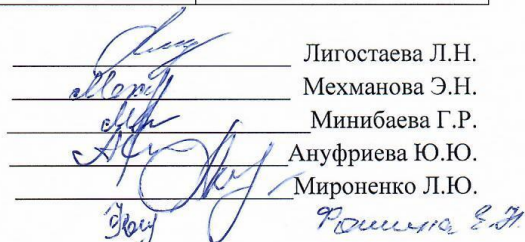 Лигостаева Л.Н.
Мехманова Э.Н.
Минибаева Г.Р.
Ануфриева Ю.Ю.
Мироненко Л.Ю.
Фомина Е.Н.